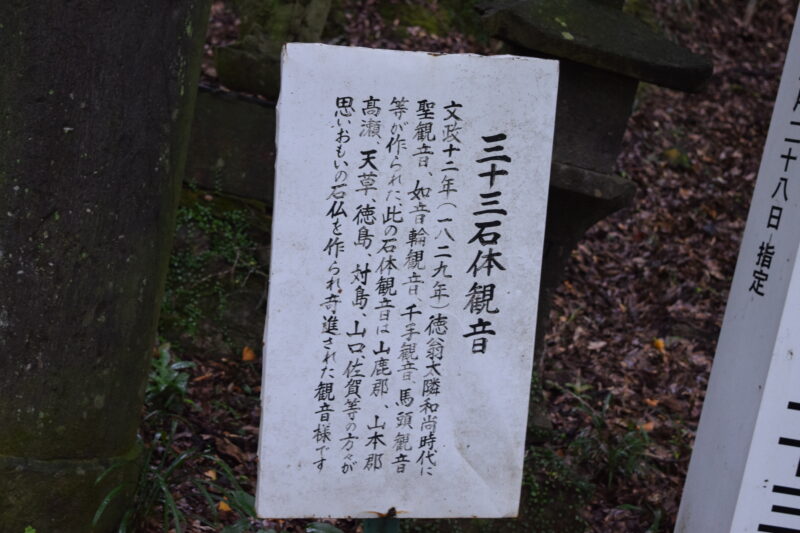 三十三石体観音
文政十二年(一八二九年)徳翁太隣和尚時代に
聖観音、如音輪観音、千手観音、馬頭観音
等が作られた此の石体観音は山鹿郡、山本郡
高瀬、天草、徳島、対島、山口、佐賀等の方々が
思いおもいの石仏を作られ寄進された観音様です
二十八日指定